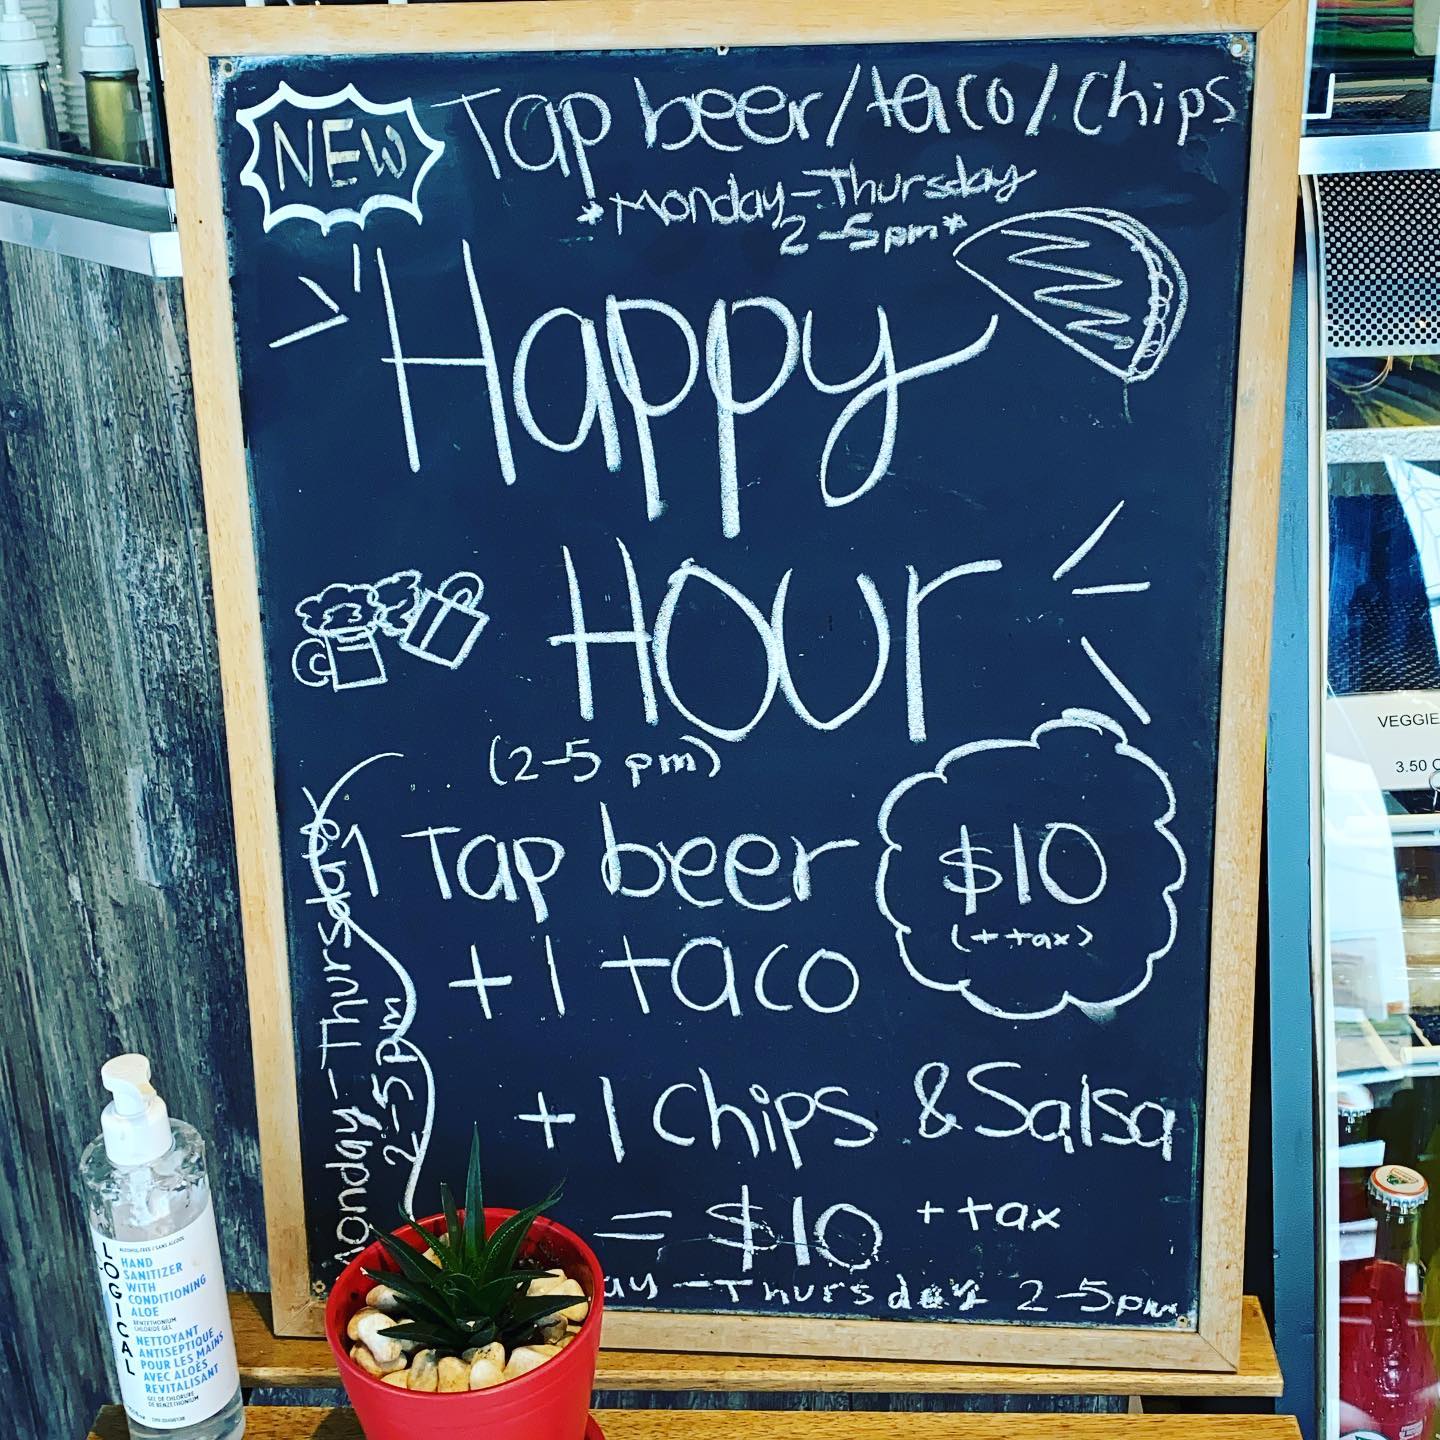 NEW
Tap beer/taco/chips
*Monday-Thursday
2-5pm*
Happy
Hour
(2-5 pm)
1 Tap beer
+1 taco
$10
(+tax)
+1 Chips & Salsa
= $10 +tax
ay - Thursday 2-5pm
Monday-Thursday
2-5pm
LOGICAL
ALCOHOL-FREE / SANS ALCOOL
HAND
SANITIZER
WITH
CONDITIONING
ALOE
BENZETHONIUM
CHLORIDE GEL
NETTOYANT
ANTISEPTIQUE
POUR LES MAINS
AVEC ALOÈS
REVITALISANT
GEL DE CHLORURE
DE BENZETHONIUM
VEGGIE
3.50